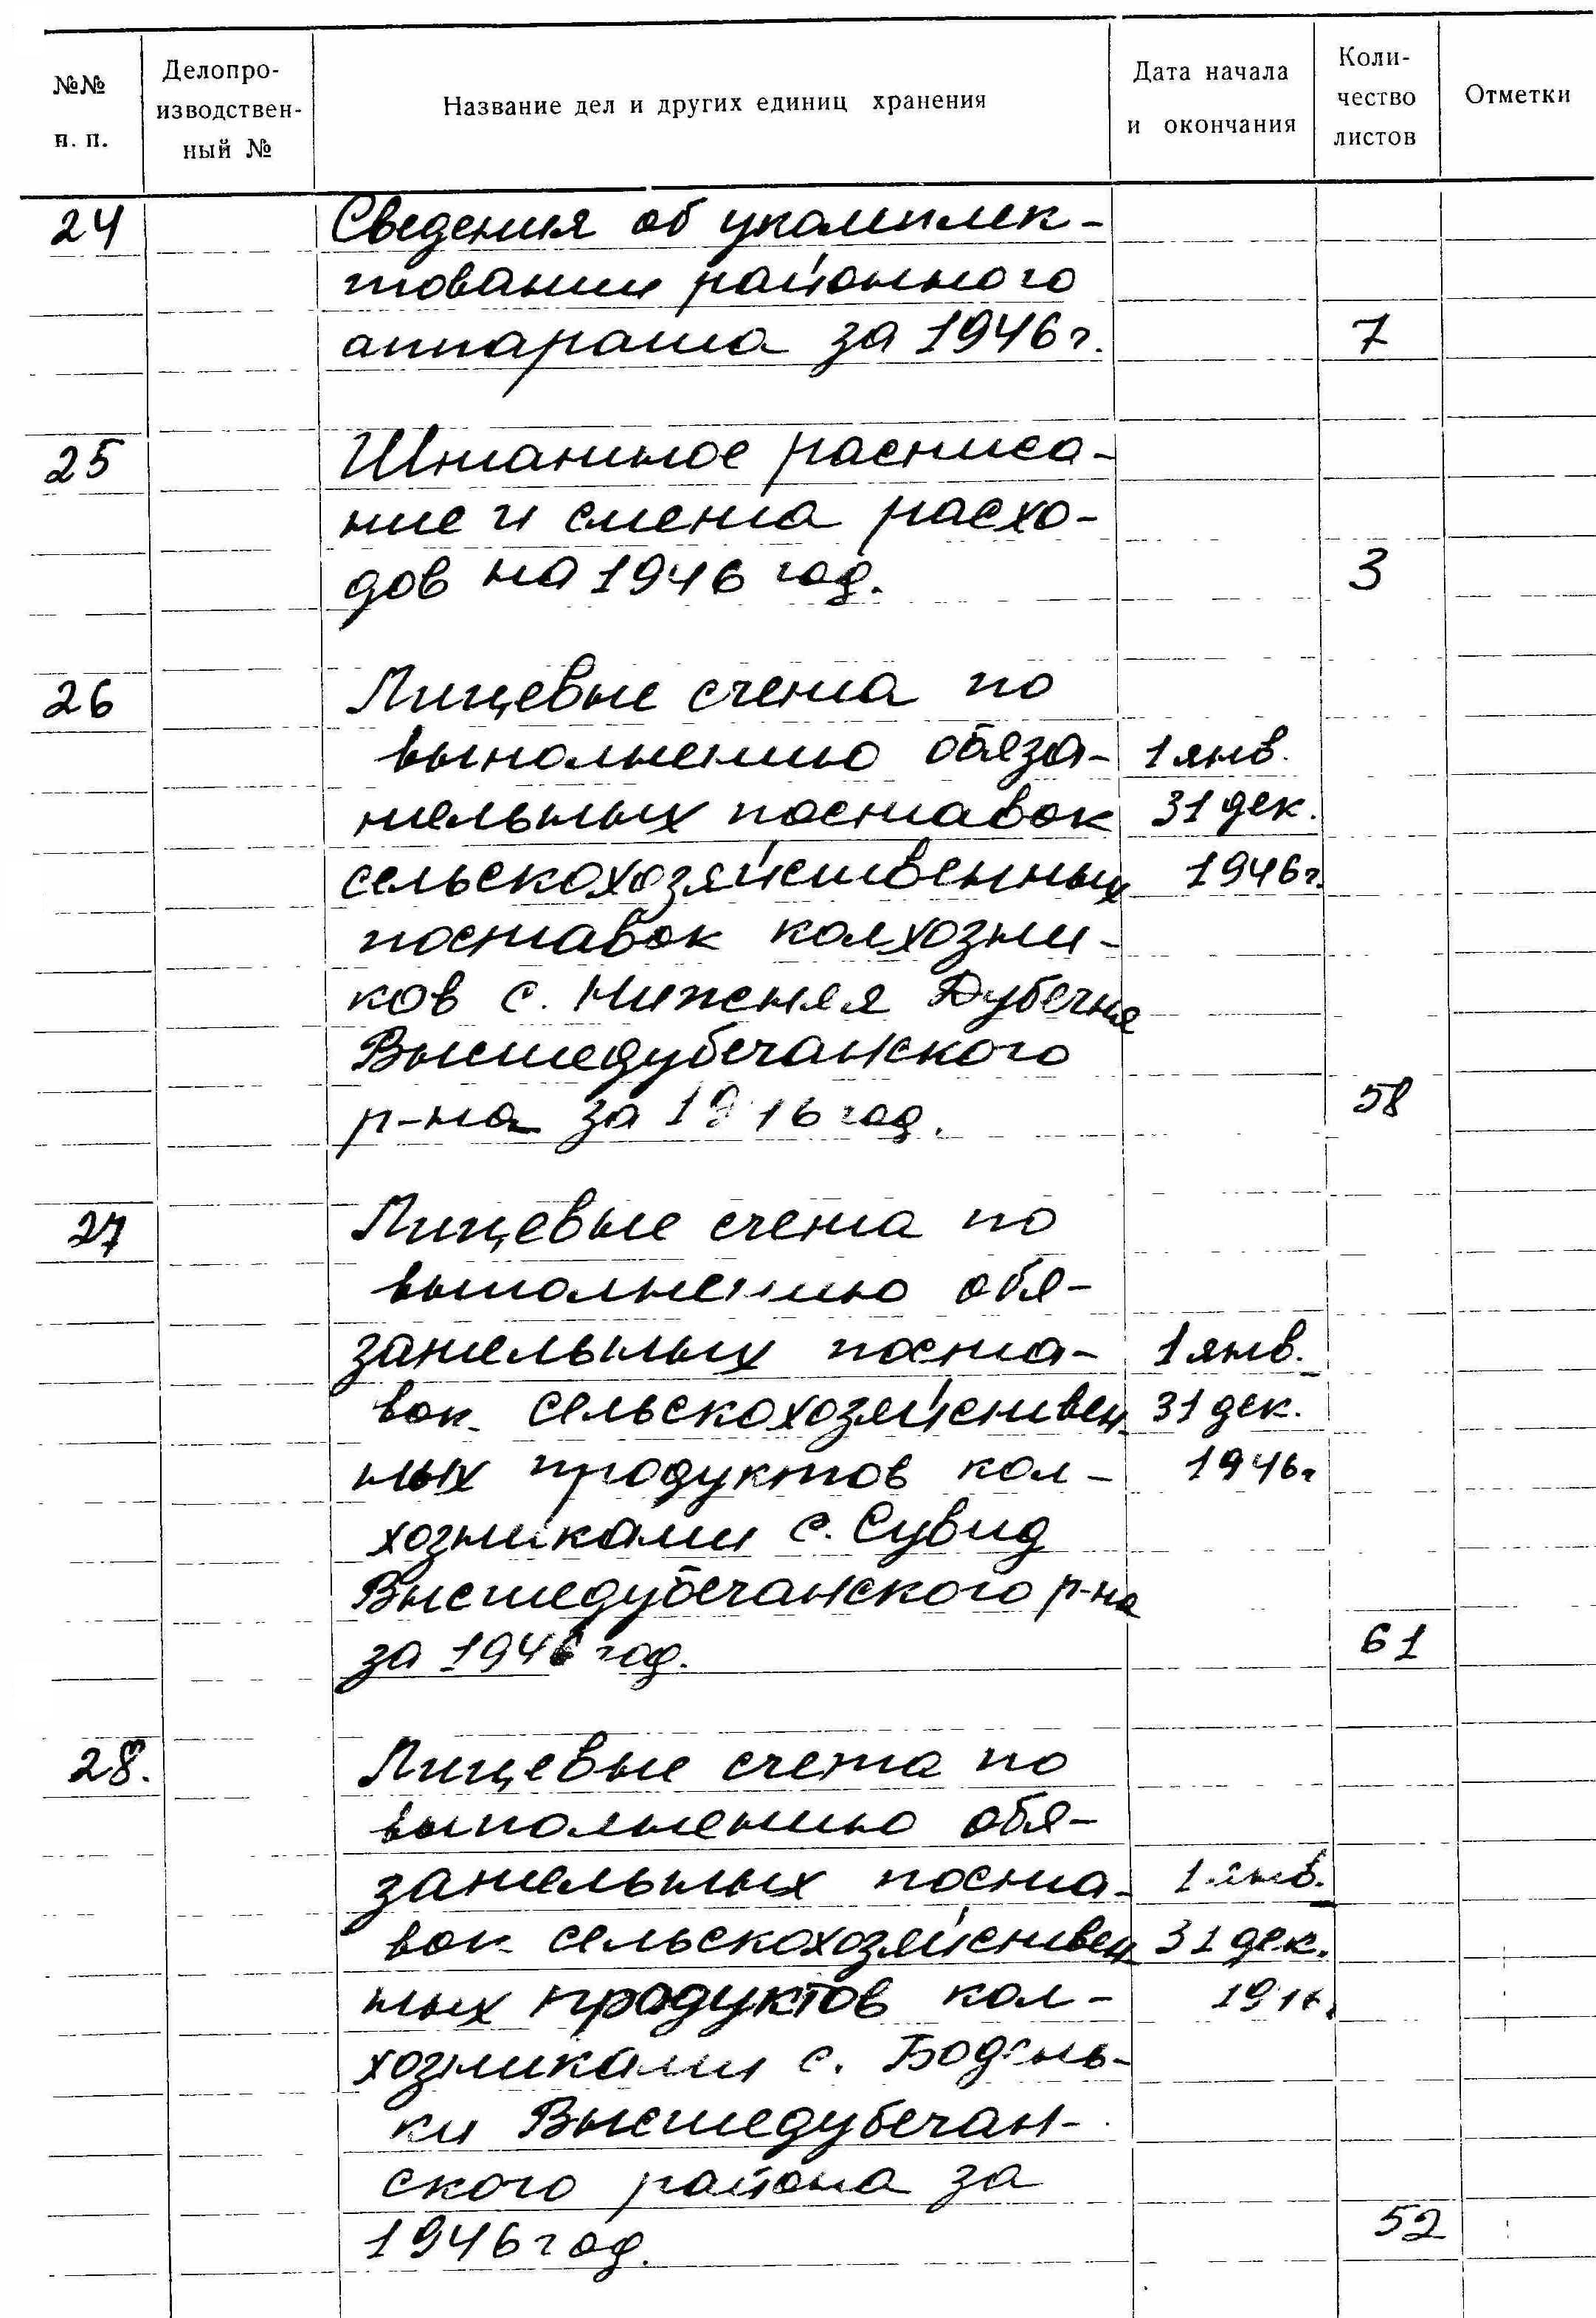 №№ н. п.
Делопро-
изводствен-
ный №
Название дел и других единиц хранения
Дата начала
и окончания
Коли-
чество
листов
Отметки
24 Сведения об укомплек-
товании районного
аппарата за 1946 г. 7
25 Штатное расписа-
ние и смета расхо-
дов на 1946 год. 3
26 Лицевые счета по
выполнению обяза- 1 янв.
тельных поставок 31 дек.
сельскохозяйственных 1946 г.
поставок колхозни-
ков с. Нижняя Дубечня
Высшедубечанского
р-на за 1946 год. 58
27 Лицевые счета по
выполнению обя-
зательных поста- 1 янв.
вок сельскохозяйствен- 31 дек.
ных продуктов кол- 1946 г
хозниками с. Сувид
Высшедубечанского р-на
за 1946 год. 61
28. Лицевые счета по
выполнению обя-
зательных поста- 1 янв.
вок сельскохозяйствен 31 дек.
ных продуктов кол-
хозниками с. Бодень-
ки Высшедубечан-
ского района за
1946 год. 52